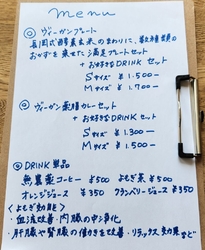 menu
◎ ヴィーガンプレート
長岡式酵素玄米のまわりに、数種類の
おかずを乗せたご満足プレートセット
+ お好きなDRINK セット
Sサイズ ¥1.500ー
M ¥1.700ー
◎ ヴィーガン薬膳カレーセット
+ お好きなDRINKセット
Sサイズ ¥1.300ー
M ¥1.500ー
◎ DRINK 単品
無農薬コーヒー ¥500 よもぎ茶 ¥500
オレンジジュース ¥350 クランベリージュース ¥350
<よもぎ効能>
・血流改善・内臓の中浄化
・肝臓や腎臓の働きを改善・リラックス効果など